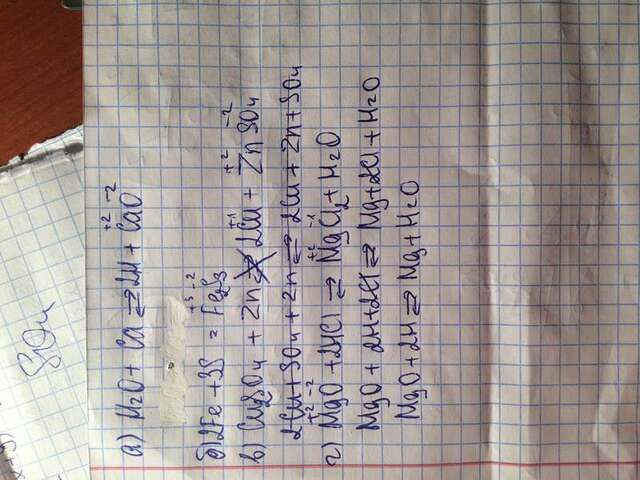 SO₄
а) H₂O + Ca ⇄ 2H + Ca⁺²O⁻²
б) 2Fe + 3S = Fe₂⁺³S₃⁻²
в) Cu₂SO₄ + Zn ⇄ 2Cu⁺¹ + Zn⁺²SO₄⁻²
2Cu + SO₄ + Zn ⇄ 2Cu + Zn + SO₄
г) Mg⁺²O⁻² + 2HCl ⇄ Mg⁺²Cl₂⁻¹ + H₂O
MgO + 2H + 2Cl ⇄ Mg + 2Cl + H₂O
MgO + 2H ⇄ Mg + H₂O